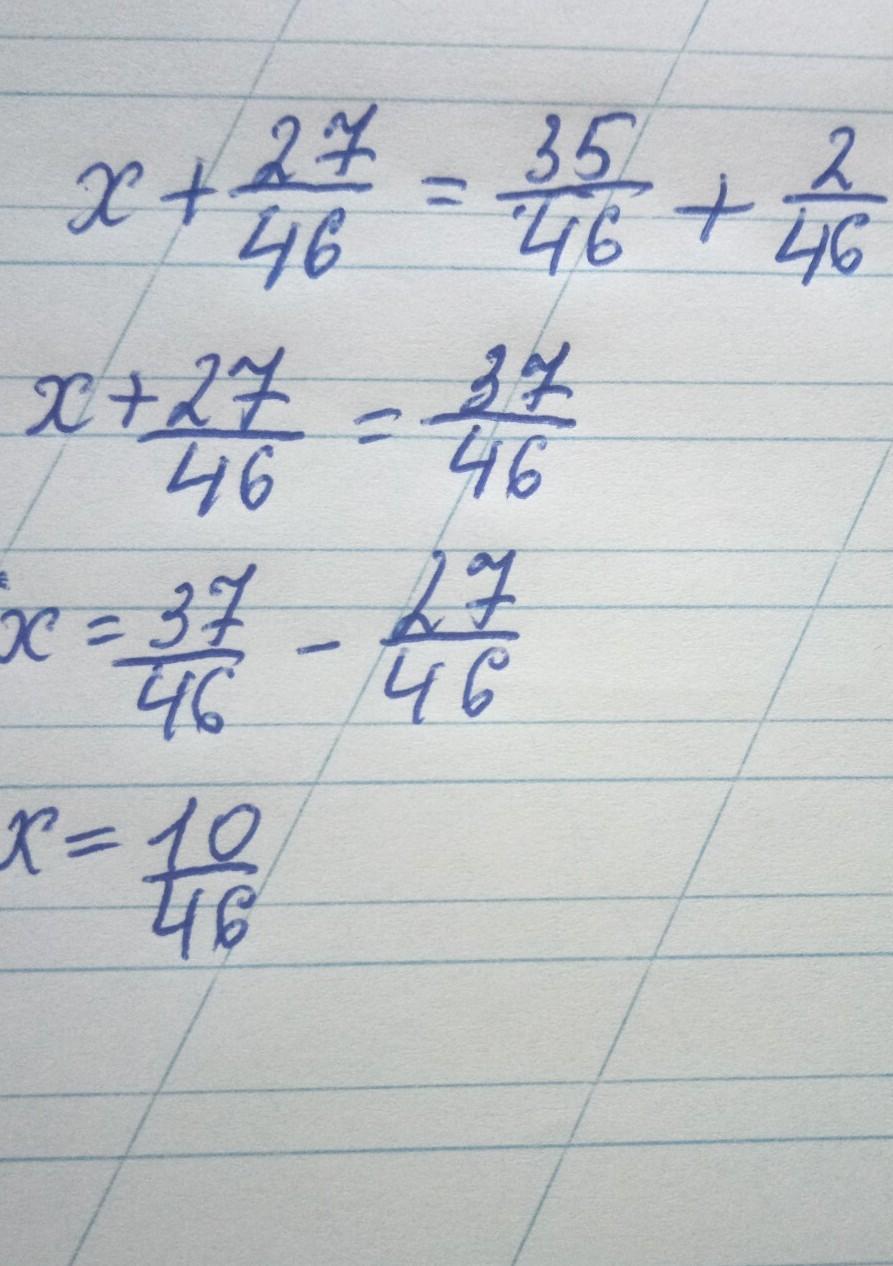 x + 27/46 = 35/46 + 2/46
x + 27/46 = 37/46
x = 37/46 - 27/46
x = 10/46